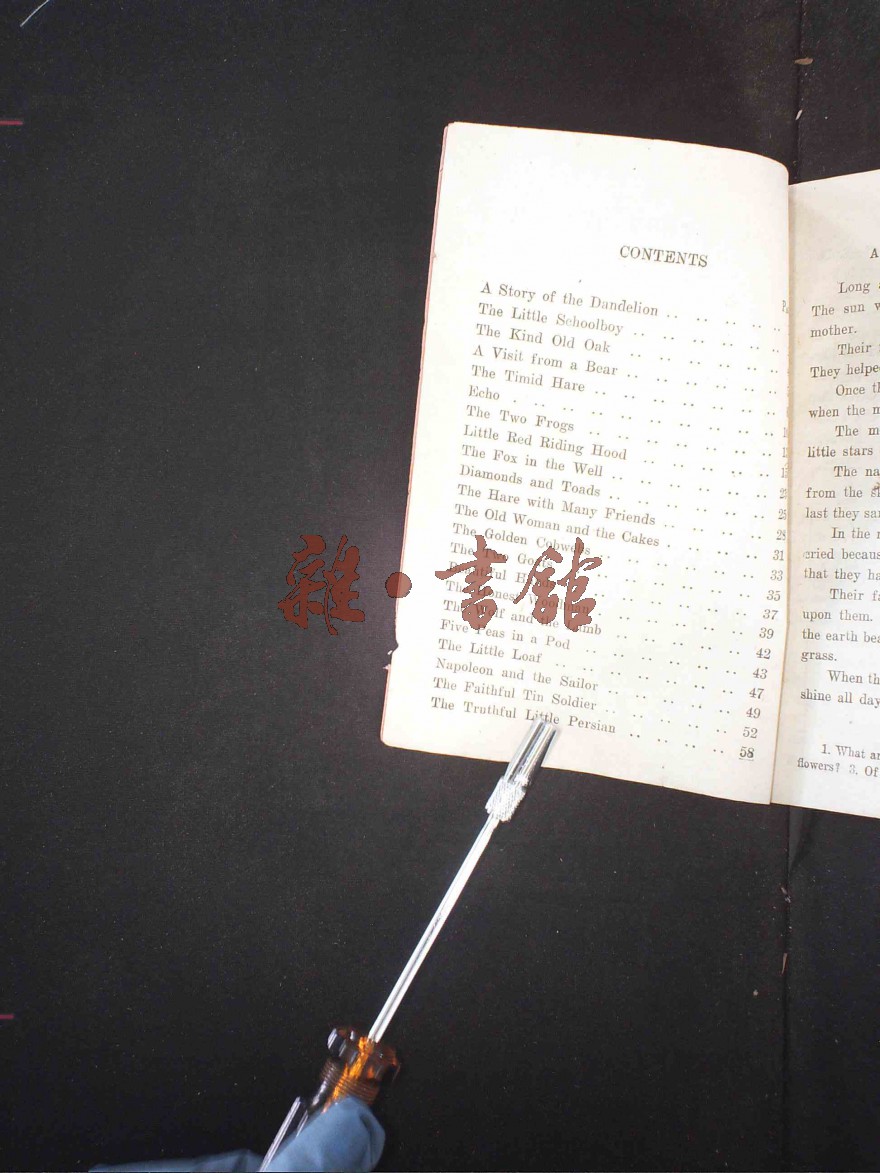 CONTENTS
A Story of the Dandelion .. .. .. ..
The Little Schoolboy .. .. .. .. ..
The Kind Old Oak .. .. .. .. ..
A Visit from a Bear .. .. .. .. ..
The Timid Hare .. .. .. .. .. ..
Echo .. .. .. .. .. .. ..
The Two Frogs .. .. .. .. .. ..
Little Red Riding Hood .. .. .. ..
The Fox in the Well .. .. .. .. ..
Diamonds and Toads .. .. .. .. .. 25
The Hare with Many Friends .. .. .. .. 28
The Old Woman and the Cakes .. .. .. 31
The Golden Cobwebs .. .. .. .. .. 33
The Two .. .. .. .. .. 35
.. .. .. .. .. 37
The .. .. .. .. .. 39
The and the Lamb .. .. .. .. .. 42
Five Peas in a Pod .. .. .. .. .. 43
The Little Loaf .. .. .. .. .. .. 47
Napoleon and the Sailor .. .. .. .. .. 49
The Faithful Tin Soldier .. .. .. .. 52
The Truthful Little Persian .. .. .. .. 58
A
Long
The sun
mother.
Their
They helpe
Once th
when the m
The m
little stars
The na
from the
last they sa
In the
cried becaus
that they ha
Their fa
upon them.
the earth bea
grass.
When th
shine all day
1. What ar
flowers? 3. Of
雜·書館